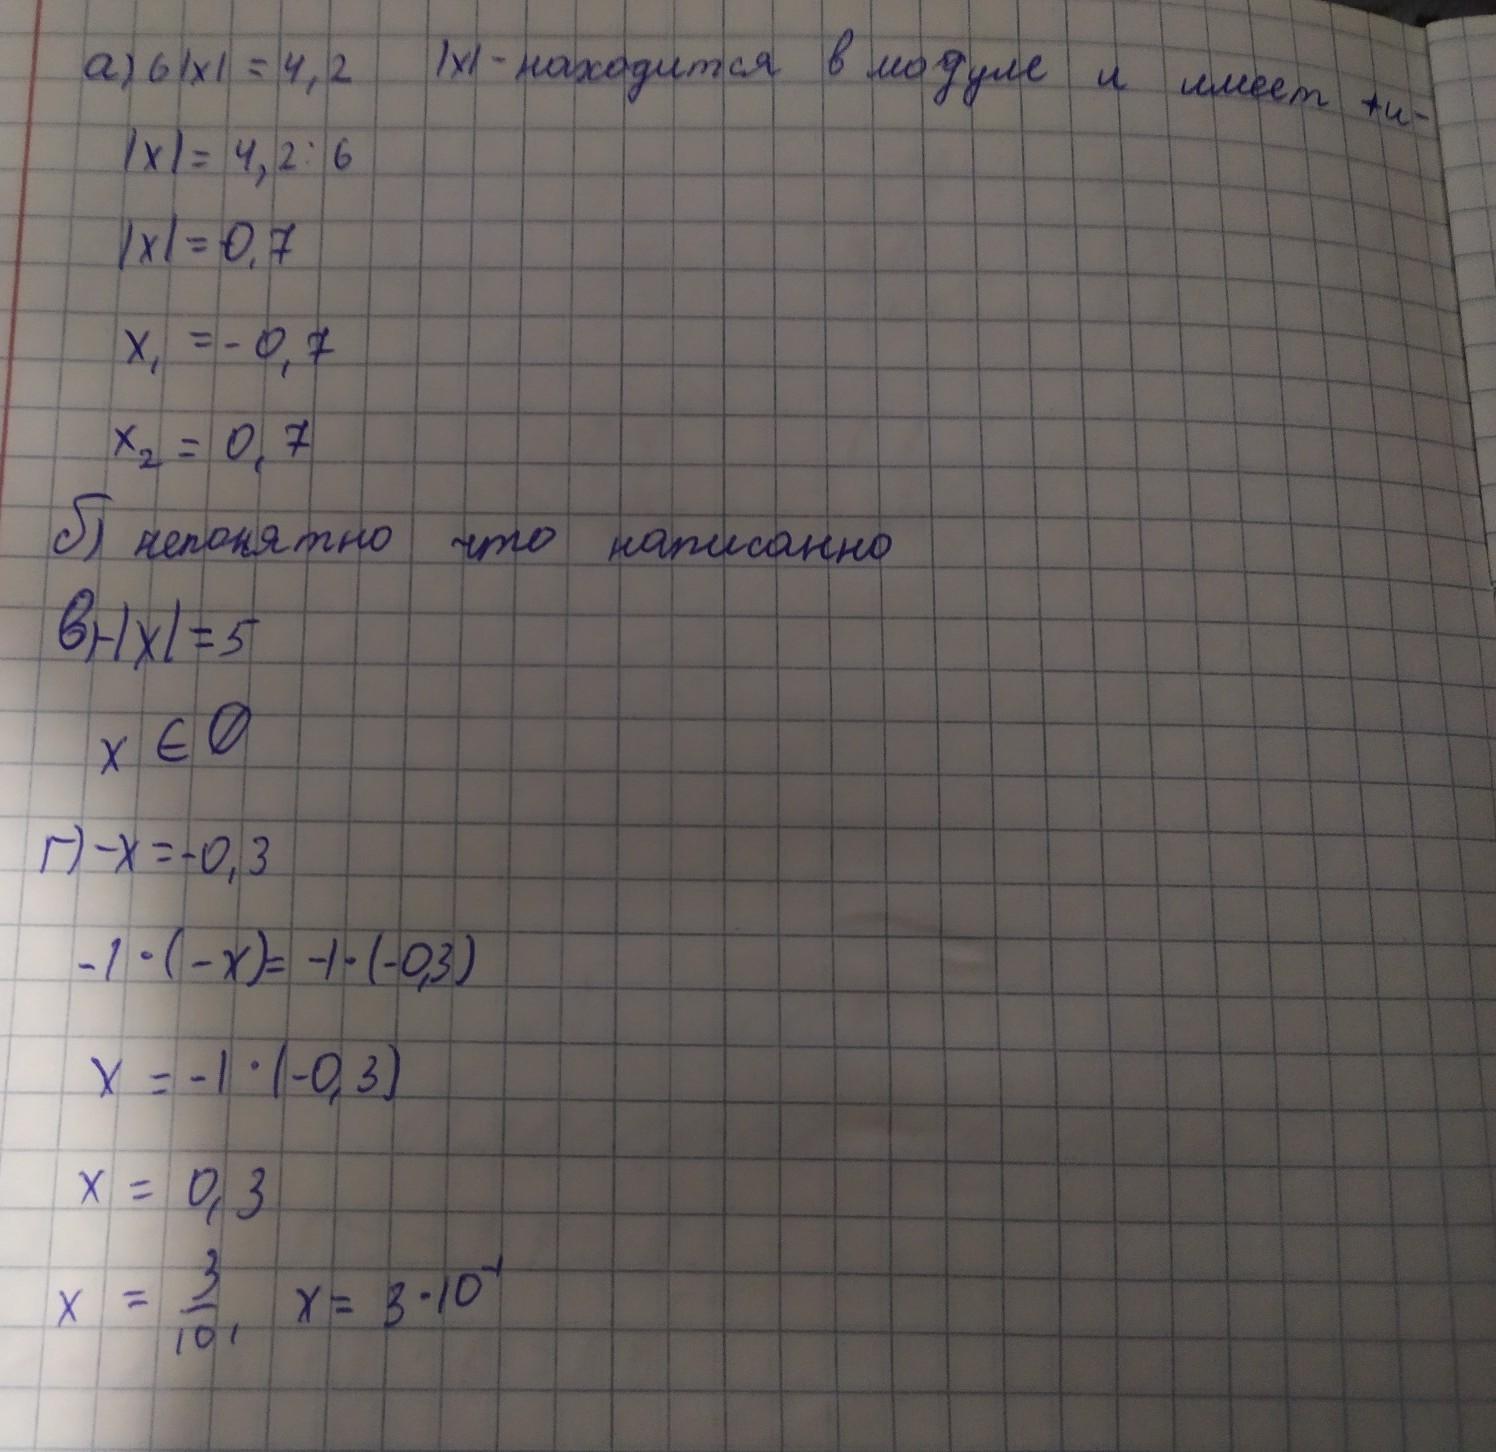 а) 6|x| = 4,2   |x| - находится в модуле и имеет + и -
|x| = 4,2 : 6
|x| = 0,7
x₁ = - 0,7
x₂ = 0,7
б) непонятно что написанно
в) -|x| = 5
x ∈ ∅
г) -x = -0,3
-1 · (-x) = -1 · (-0,3)
x = -1 · (-0,3)
x = 0,3
x = 3/10,   x = 3 · 10⁻¹